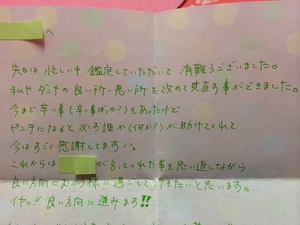 へ
先日は忙しい中 鑑定していただいて 有難うございました。
私や ダンナの良い所・悪い所を 改めて見直す事ができました。
今まで辛い事(辛い事ばっか?)もあったけど
ピンチになると 必ず誰か(何か?)が助けてくれて
今はすごく感謝してます^^。
これからは が言ってくれた事を思い返しながら
良い方向にむかう様に過ごして行きたいと思います。
イヤッ!! 良い方向に進みます!!